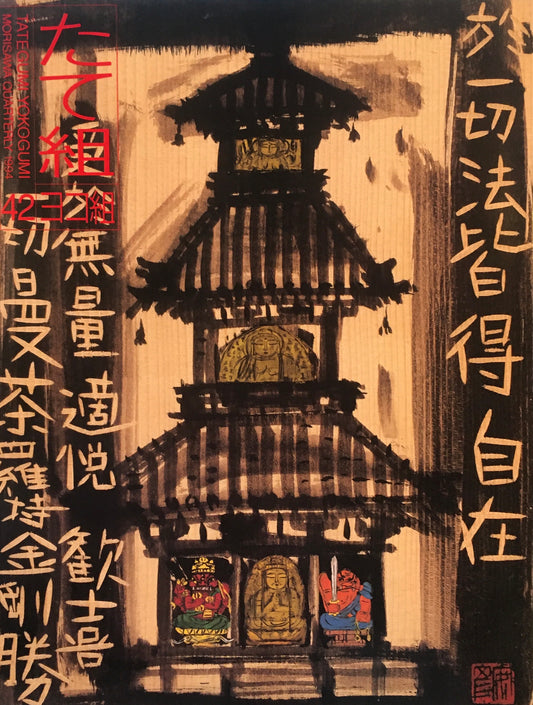 於一切法皆得自在
たて組
ヨコ組
42
TATEGUMI YOKOGUMI
MORISAWA QUARTERLY 1994
於無量適悦歓喜
切曼荼羅持金剛勝